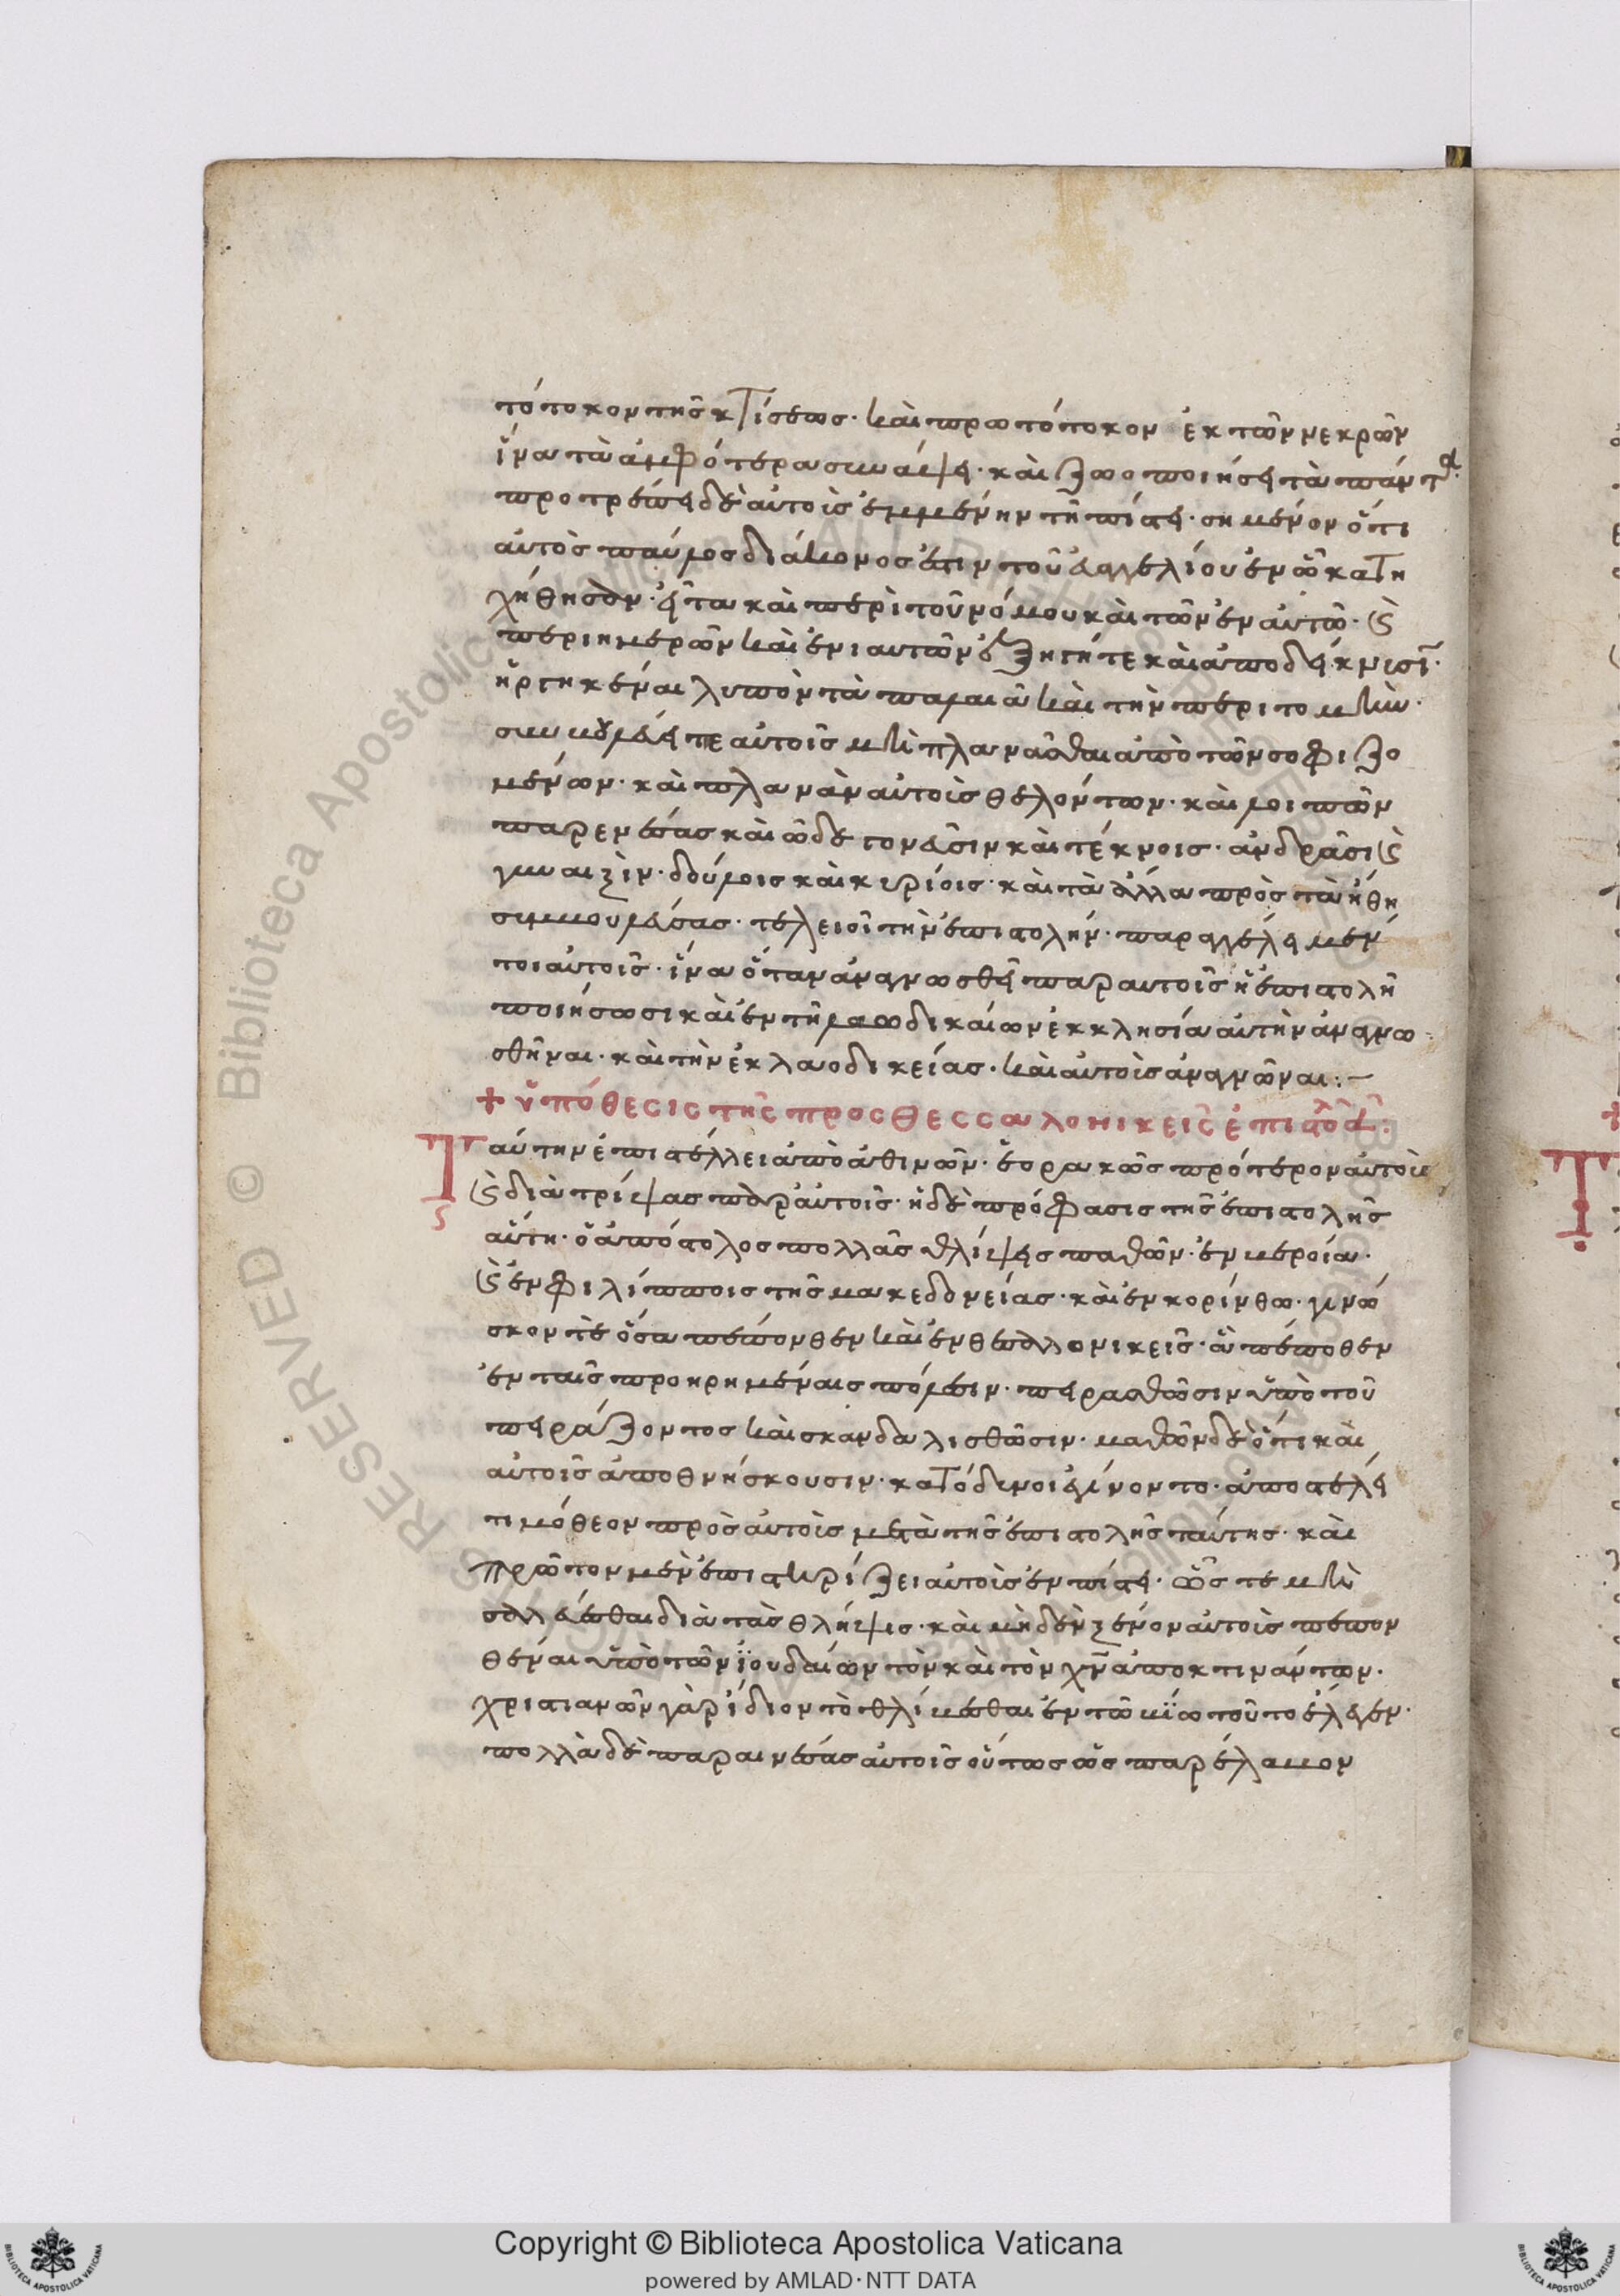 τότοκον τῆς κτίσεως· καὶ πρωτότοκον ἐκ τῶν νεκρῶν
ἵνα τὰ ἀμφότερα συνάψει· καὶ ζωοποιήσει τὰ πάντα·
προτρέπει δὲ αὐτοὶς ἐμμένην τῆ πίστει· σημένον ὅτι
αὐτὸς παύλος διάκονος ἐστιν τοῦ εὐαγγελίου ἐν ὧ κατη
χήθησαν· εἶτα καὶ περὶ τοῦ νόμου καὶ τῶν ἐν αὐτῶ· καὶ
περι ημερῶν καὶ ἐνιαυτῶν
ἠργηκέναι λυπὸν τὰ παλαιὰ καὶ τὴν περιτομὴν·
συμβουλεύει τε αὐτοῖς μὴ πλανᾶσθαι ἀπὸ τῶν σοφιζο
μένων· καὶ πλανὰν αὐτοὶς θελόντων· καὶ λοιπῶν
παρενέσας καὶ ὧδε γονεῦσιν καὶ τέκνοις· ἀνδρᾶσι καὶ
γυναιξὶν· δούλοις καὶ κυρίοις· καὶ τὰ ἄλλα πρὸς τὰ ἤθη
συμβουλεύσας· τελειοῖ τὴν ἐπιστολήν· παραγγέλει μέν
τοι αὐτοῖς· ἵνα ὅταν ἀναγνωσθεῖ παρ αυτοῖς ἡ ἐπιστολὴ
ποιήσωσι καὶ ἐν τῆ λαωδικαίων ἐκκλησία αὐτὴν ἀναγνω
σθῆναι· καὶ τὴν ἐκ λαοδικείας· καὶ αὐτοὶς ἀναγνῶναι:–
+ ὑπόθεσις τῆς προς θεσσαλονικεῖς ἐπιστολῆς α:
Ταύτην ἐπιστέλλει ἀπὸ ἀθινῶν· ἑορακῶς πρότερον αὐτοὶς
καὶ διατρίψας παρ αὐτοῖς· ἡ δὲ πρόφασις τῆς ἐπιστολῆς
αὕτη· ὁ ἀπόστολος πολλᾶς θλίψεις παθῶν· ἐν βεροία·
καὶ ἐν φιλίπποις τῆς μακεδονείας· καὶ ἐν κορίνθω· γινώ
σκον τὲ ὅσα πέπονθεν καὶ ἐν θεσσαλονικεῖς· ἃ πέποθεν
ἐν ταῖς προηρημέναις πόλεσιν· πειρασθῶσιν ὑπὸ τοῦ
πειράζοντος καὶ σκανδαλισθῶσιν· μαθῶν δὲ ὅτι καὶ
αὐτοῖς ἀποθνήσκουσιν· κατόδινοι ἐγίνοντο· ἀποστέλει
τιμόθεον πρὸς αὐτοὶς μετὰ τῆς ἐπιστολῆς ταύτης· καὶ
πρῶτον μὲν ἐπιστηρίζει αὐτοὶς ἐν πίστει· ὥς τε μὴ
σαλεύεσθαι διὰ τὰς θλήψις· καὶ μὴδὲν ξένον αὐτοὶς πέπον
θέναι ὑπὸ τῶν ἰουδαίων τὸν καὶ τὸν χν ἀποκτινάντων·
χριστιανῶν γὰρ ἴδιον τὸ θλίβεσθαι ἐν τῶ βίω τοῦτο ἔλεγεν·
πολλὰ δὲ παραινέσας αὐτοῖς οὕτως ὡς παρέλαβον